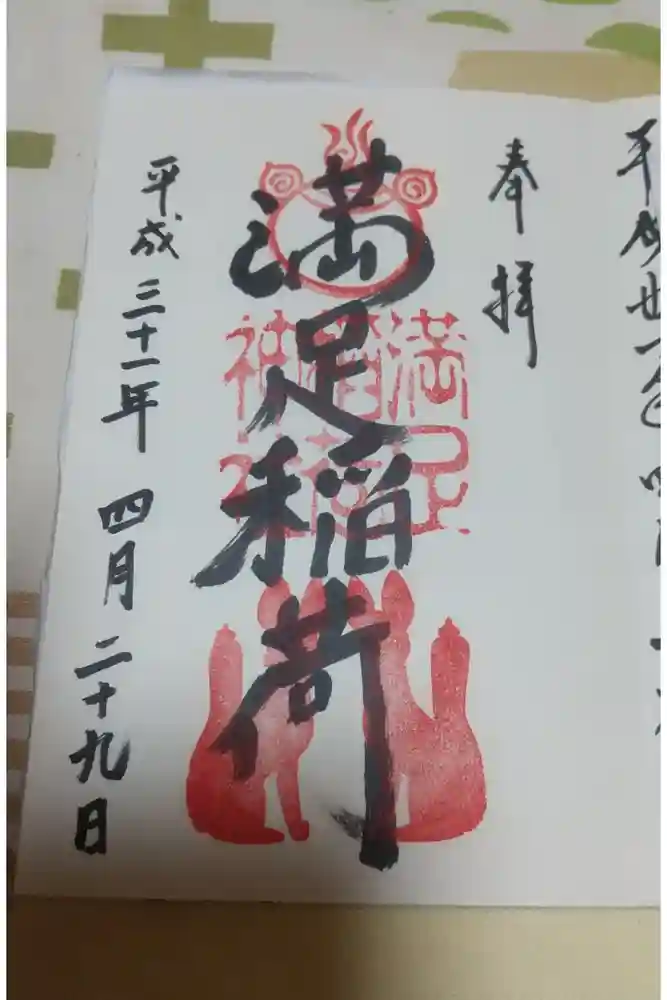 平成卅一年四
奉拝
満足稲荷
満足稲荷神社
平成三十一年 四月二十九日